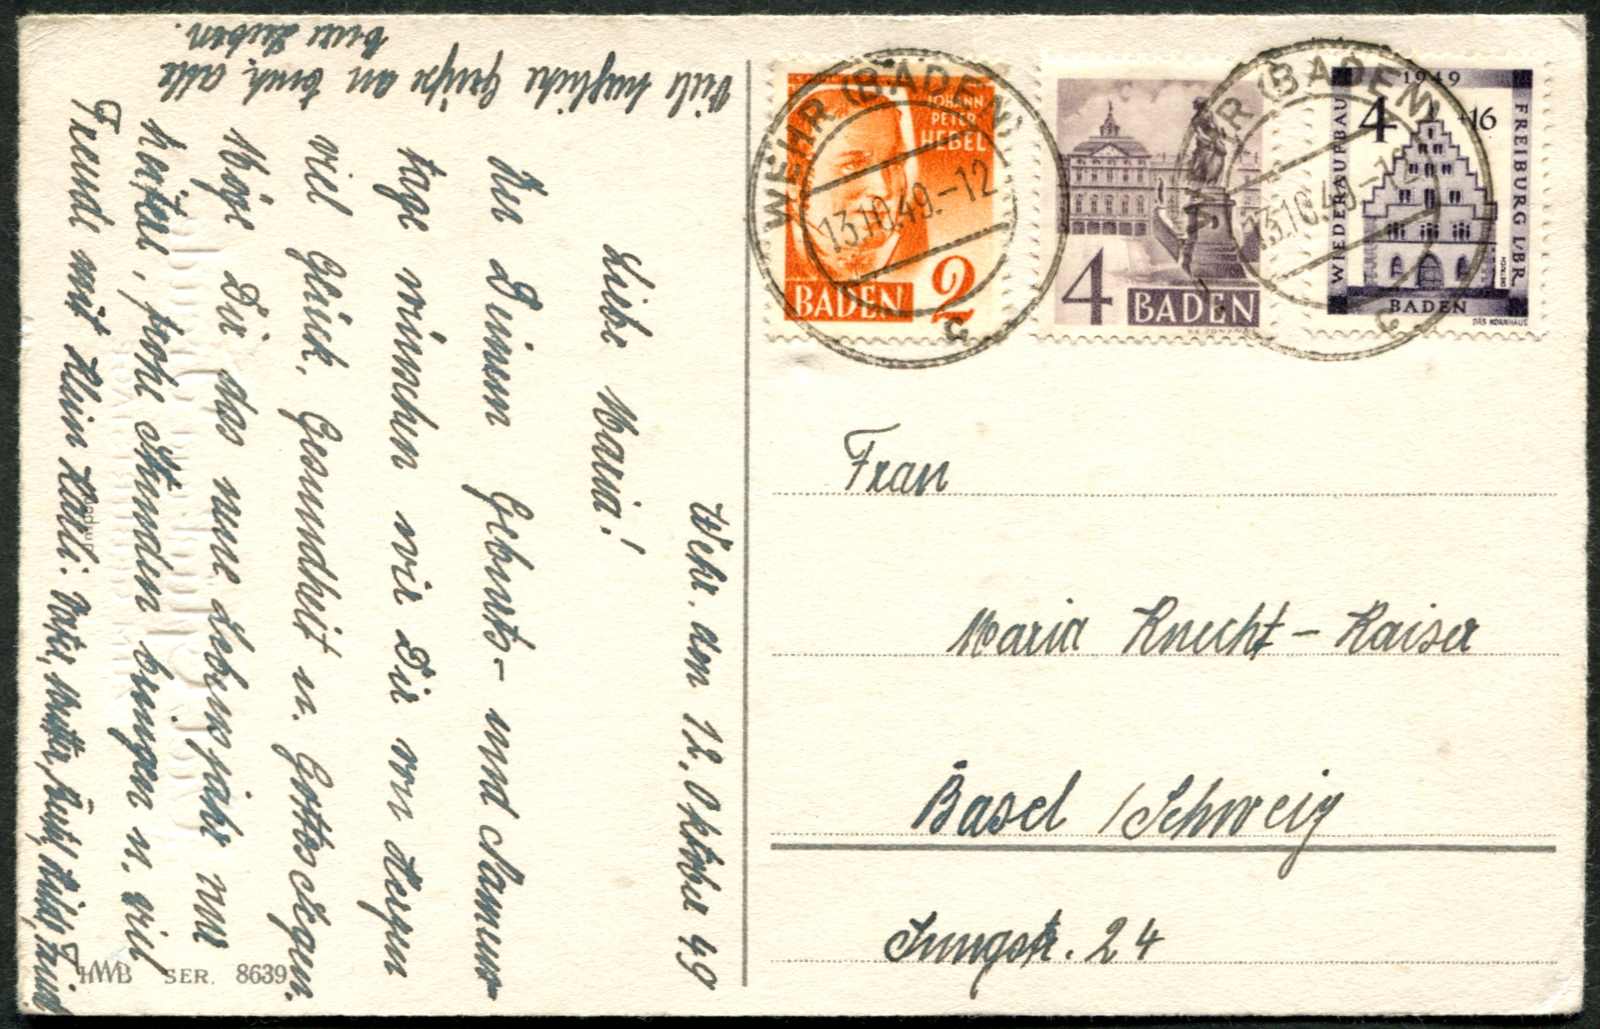 Wehr, den 12. Oktober 49
Liebe Maria!
Zu Deinem Geburts- und Namens-
tage wünschen wir Dir von Herzen
viel Glück, Gesundheit u. Gottes Segen.
Möge Dir das neue Lebensjahr nur
heitere, frohe Stunden bringen u. viel
Freude mit klein Karli. Vater, Mutter,
Viele herzliche Grüsse an Euch alle
Ihr Lieben.
HWB SER. 8639
JOHANN
PETER
HEBEL
BADEN 2
4 BADEN
1949
4 +16
WIEDERAUFBAU
FREIBURG I/BR.
BADEN
DAS KORNHAUS
WEHR (BADEN)
13.10.49.-12
c
WEHR (BADEN)
13.10.49.-12
c
Frau
Maria Knecht-Kaiser
Basel / Schweiz
Jungstr. 24